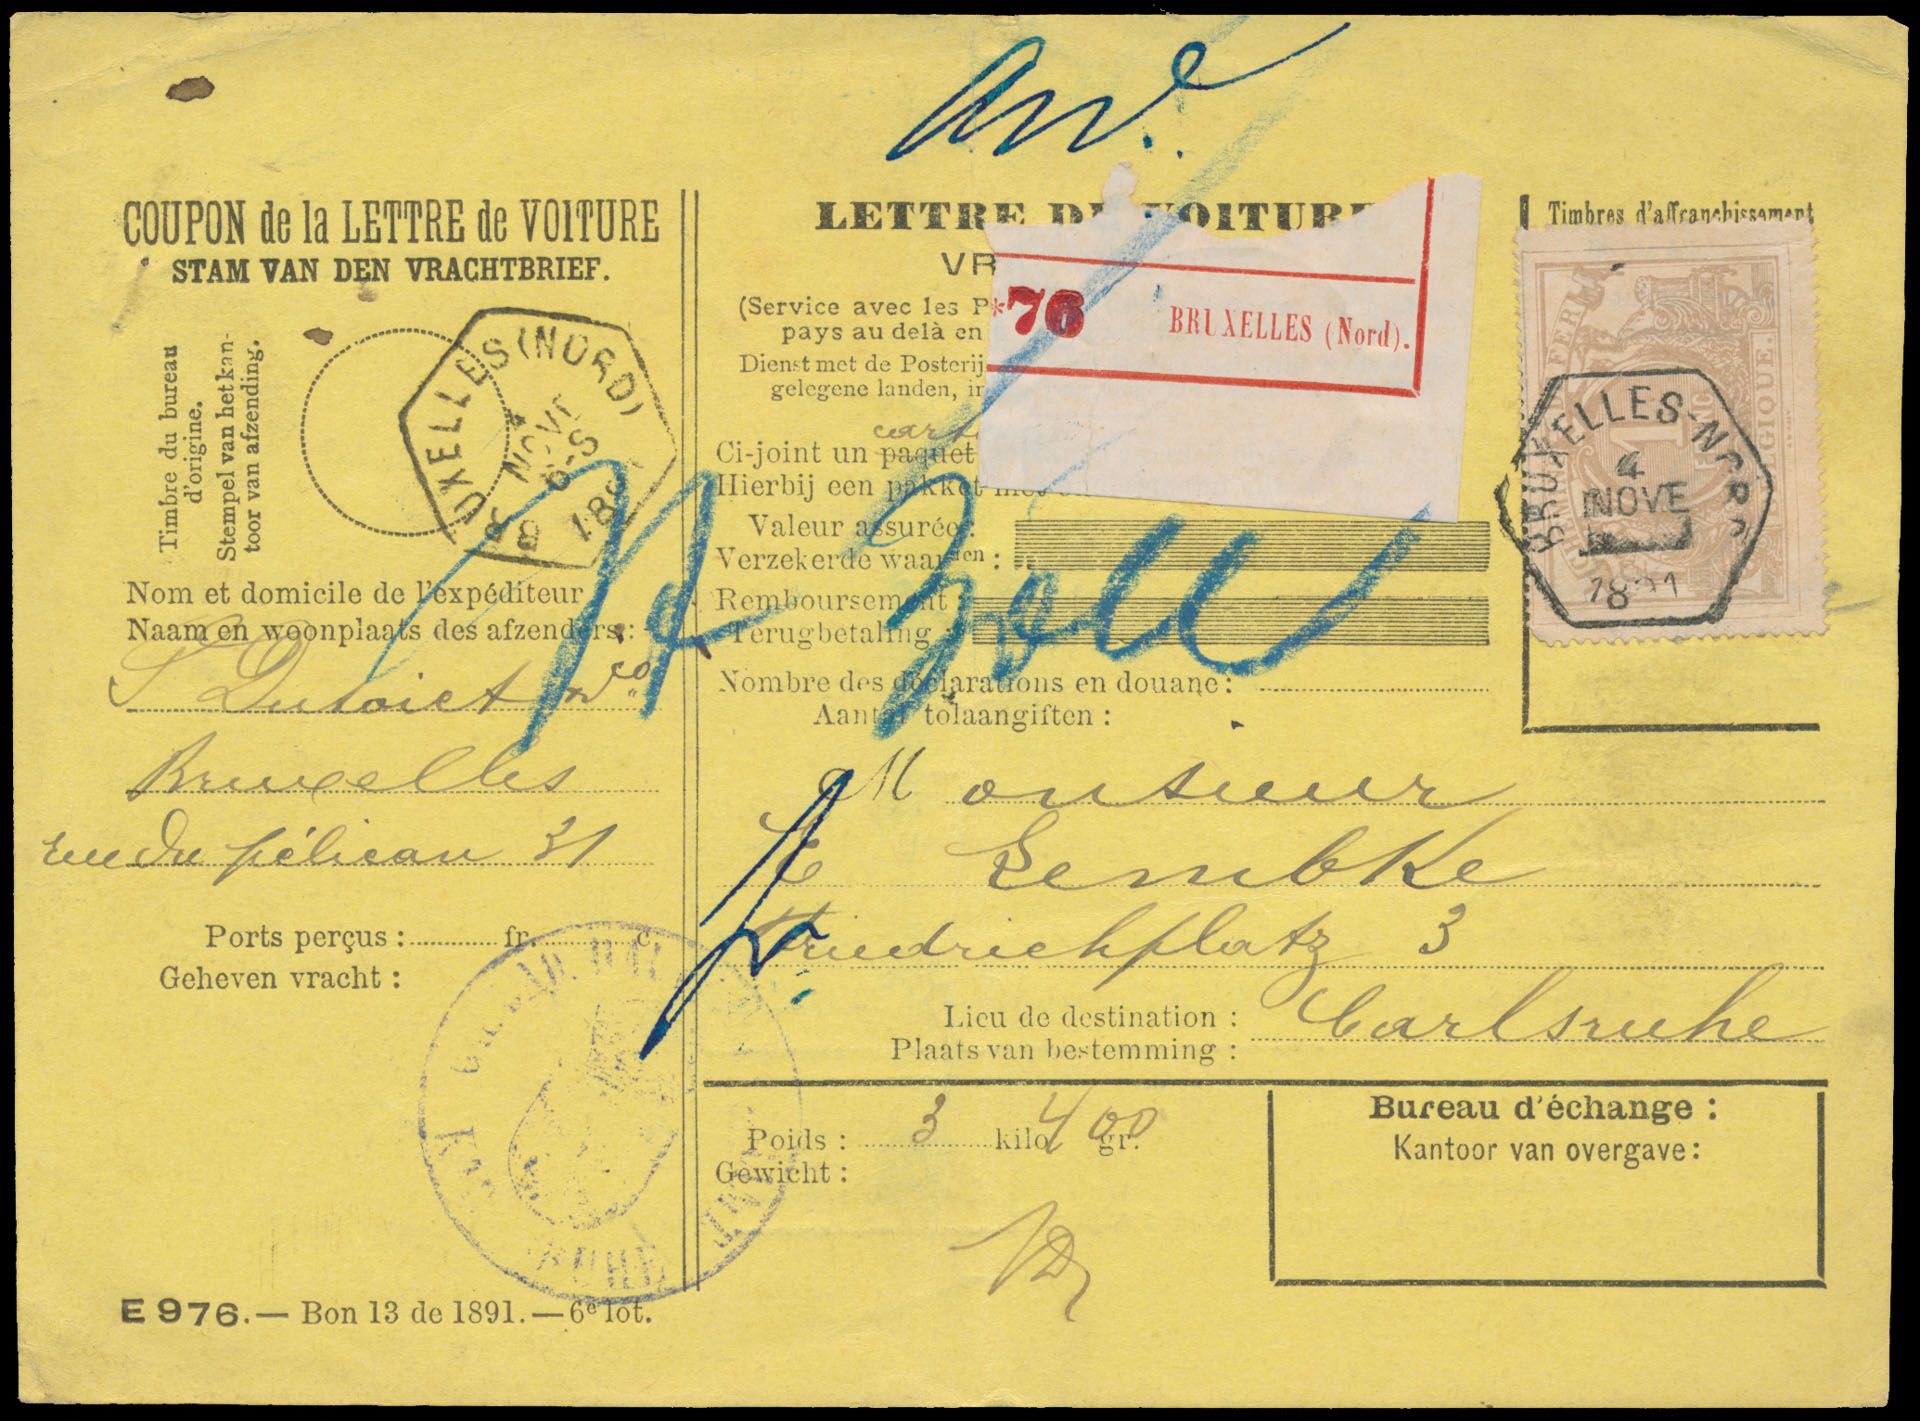 COUPON de la LETTRE de VOITURE
STAM VAN DEN VRACHTBRIEF.
Timbre du bureau
d'origine.
Stempel van het kan-
toor van afzending.
BRUXELLES (NORD)
4
NOVE
6-S
Nom et domicile de l'expéditeur
Naam en woonplaats des afzenders:
Bruxelles
rue du pélican 31
Ports perçus : fr. c.
Geheven vracht :
E 976. — Bon 13 de 1891. — 6e lot.
LETTRE DE VOITURE
VR
(Service avec les P
pays au delà en
Dienst met de Posterij
gelegene landen, in
*76 BRUXELLES (Nord).
Ci-joint un paquet
Hierbij een pakket
Valeur assurée :
Verzekerde waarden :
Remboursement :
Terugbetaling :
Zoll
Nombre des déclarations en douane :
Aantal tolaangiften :
Monsieur
E Lembke
Friedrichplatz 3
Lieu de destination : Carlsruhe
Plaats van bestemming :
Poids : 3 kilo 400 gr.
Gewicht :
Bureau d'échange :
Kantoor van overgave :
Timbres d'affranchissement
BRUXELLES-NORD
4
NOVE
1891